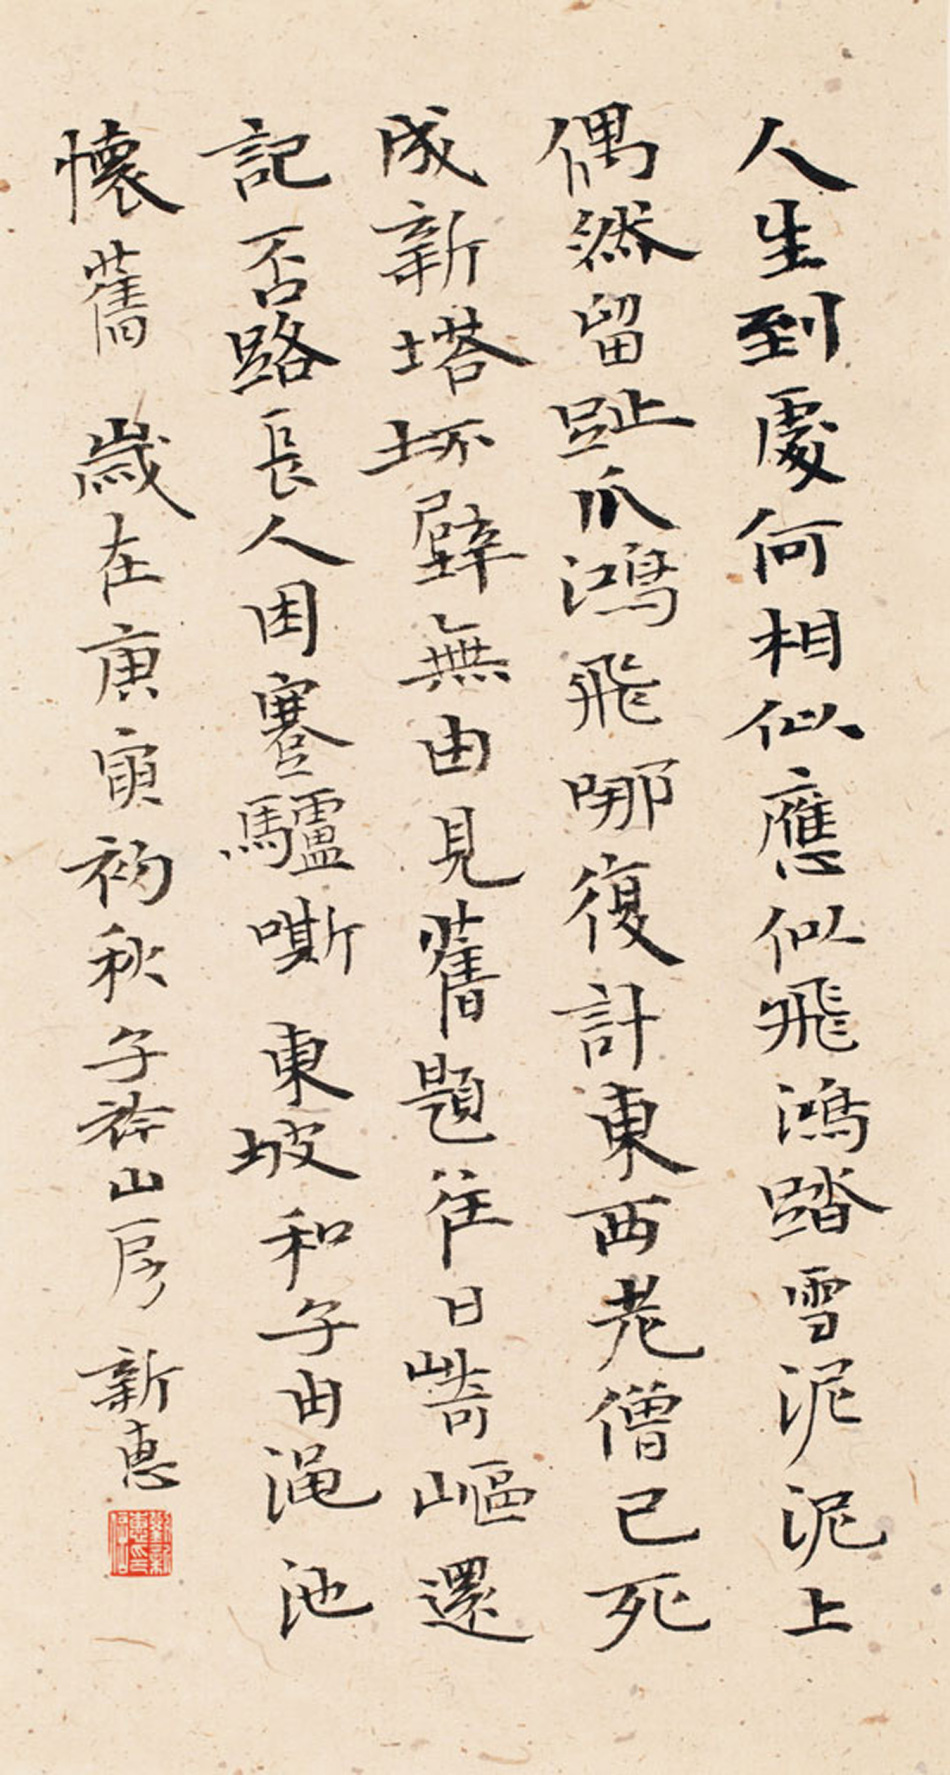 人生到處何相似應似飛鴻踏雪泥泥上
偶然留趾爪鴻飛哪復計東西老僧已死
成新塔坏壁無由見舊題往日崎嶇還
記否路長人困蹇驢嘶 東坡和子由澠池
懷舊 歲在庚寅初秋子衿山房 新惠